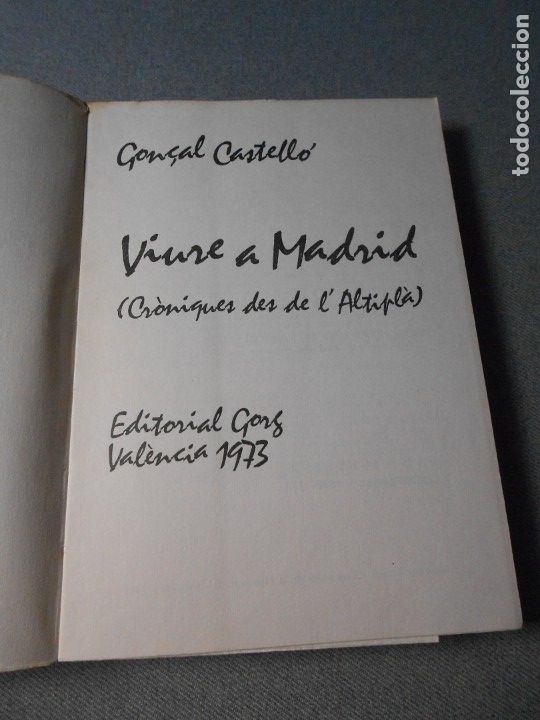 Gonçal Castelló
Viure a Madrid
(Cròniques des de l'Altiplà)
Editorial Gorg
València 1973
todocoleccion